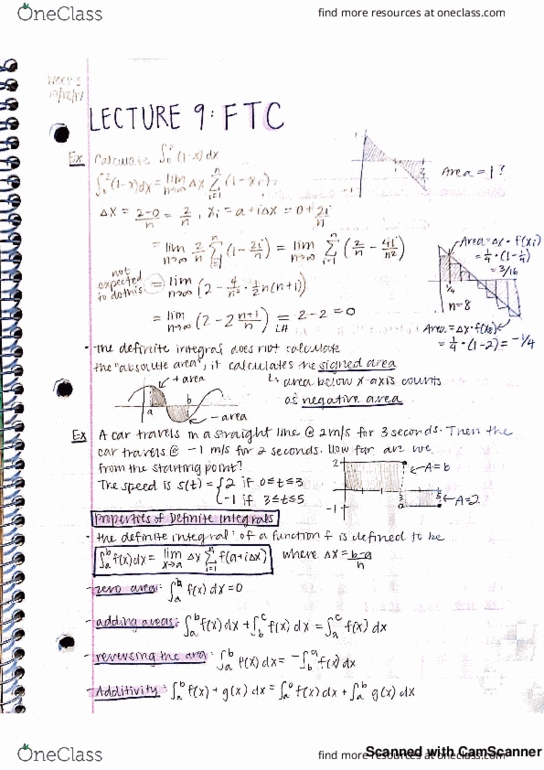 OneClass
find more resources at oneclass.com
Week 5
LECTURE 9: FTC
Ex Calculate ∫₀² (1-x) dx
Area = 1?
∫₀² (1-x) dx = lim n→∞ Δx Σ i=1 n (1-xᵢ),
Δx = 2-0/n = 2/n, xᵢ = a + iΔx = 0 + 2i/n
= lim n→∞ 2/n Σ i=1 n (1 - 2i/n) = lim n→∞ Σ i=1 n (2/n - 4i/n²)
Area = Δx · f(xᵢ)
= 1/4 · (1 - 1/4)
= 3/16
1/4
n=8
not expected to do this
= lim n→∞ (2 - 4/n² · 1/2 n(n+1))
= lim n→∞ (2 - 2 n+1/n) = LH 2-2 = 0
Area = Δx · f(x₈)
= 1/4 · (1-2) = -1/4
- the definite integral does not calculate
the "absolute area", it calculates the signed area
↳ area below x-axis counts
as negative area
+ area
a b
- area
Ex A car travels in a straight line @ 2m/s for 3 seconds. Then the
car travels @ -1 m/s for 2 seconds. How far are we
from the starting point?
The speed is s(t) = {2 if 0≤t≤3
-1 if 3≤t≤5
2
-1
3 5
A=6
A=2
Properties of Definite Integrals
- the definite integral of a function f is defined to be
∫ₐᵇ f(x)dx = lim x→a Δx Σ i=1 n f(a+iΔx) where Δx = b-a/n
- zero area: f(x) dx = 0
- adding areas: ∫ₐᵇ f(x) dx + ∫_b^c f(x) dx = ∫ₐᶜ f(x) dx
- reversing the area: ∫ₐᵇ f(x) dx = -∫_b^a f(x) dx
- Additivity: ∫ₐᵇ f(x) + g(x) dx = ∫ₐᵇ f(x) dx + ∫ₐᵇ g(x) dx
Scanned with CamScanner
OneClass
find more resources at oneclass.com